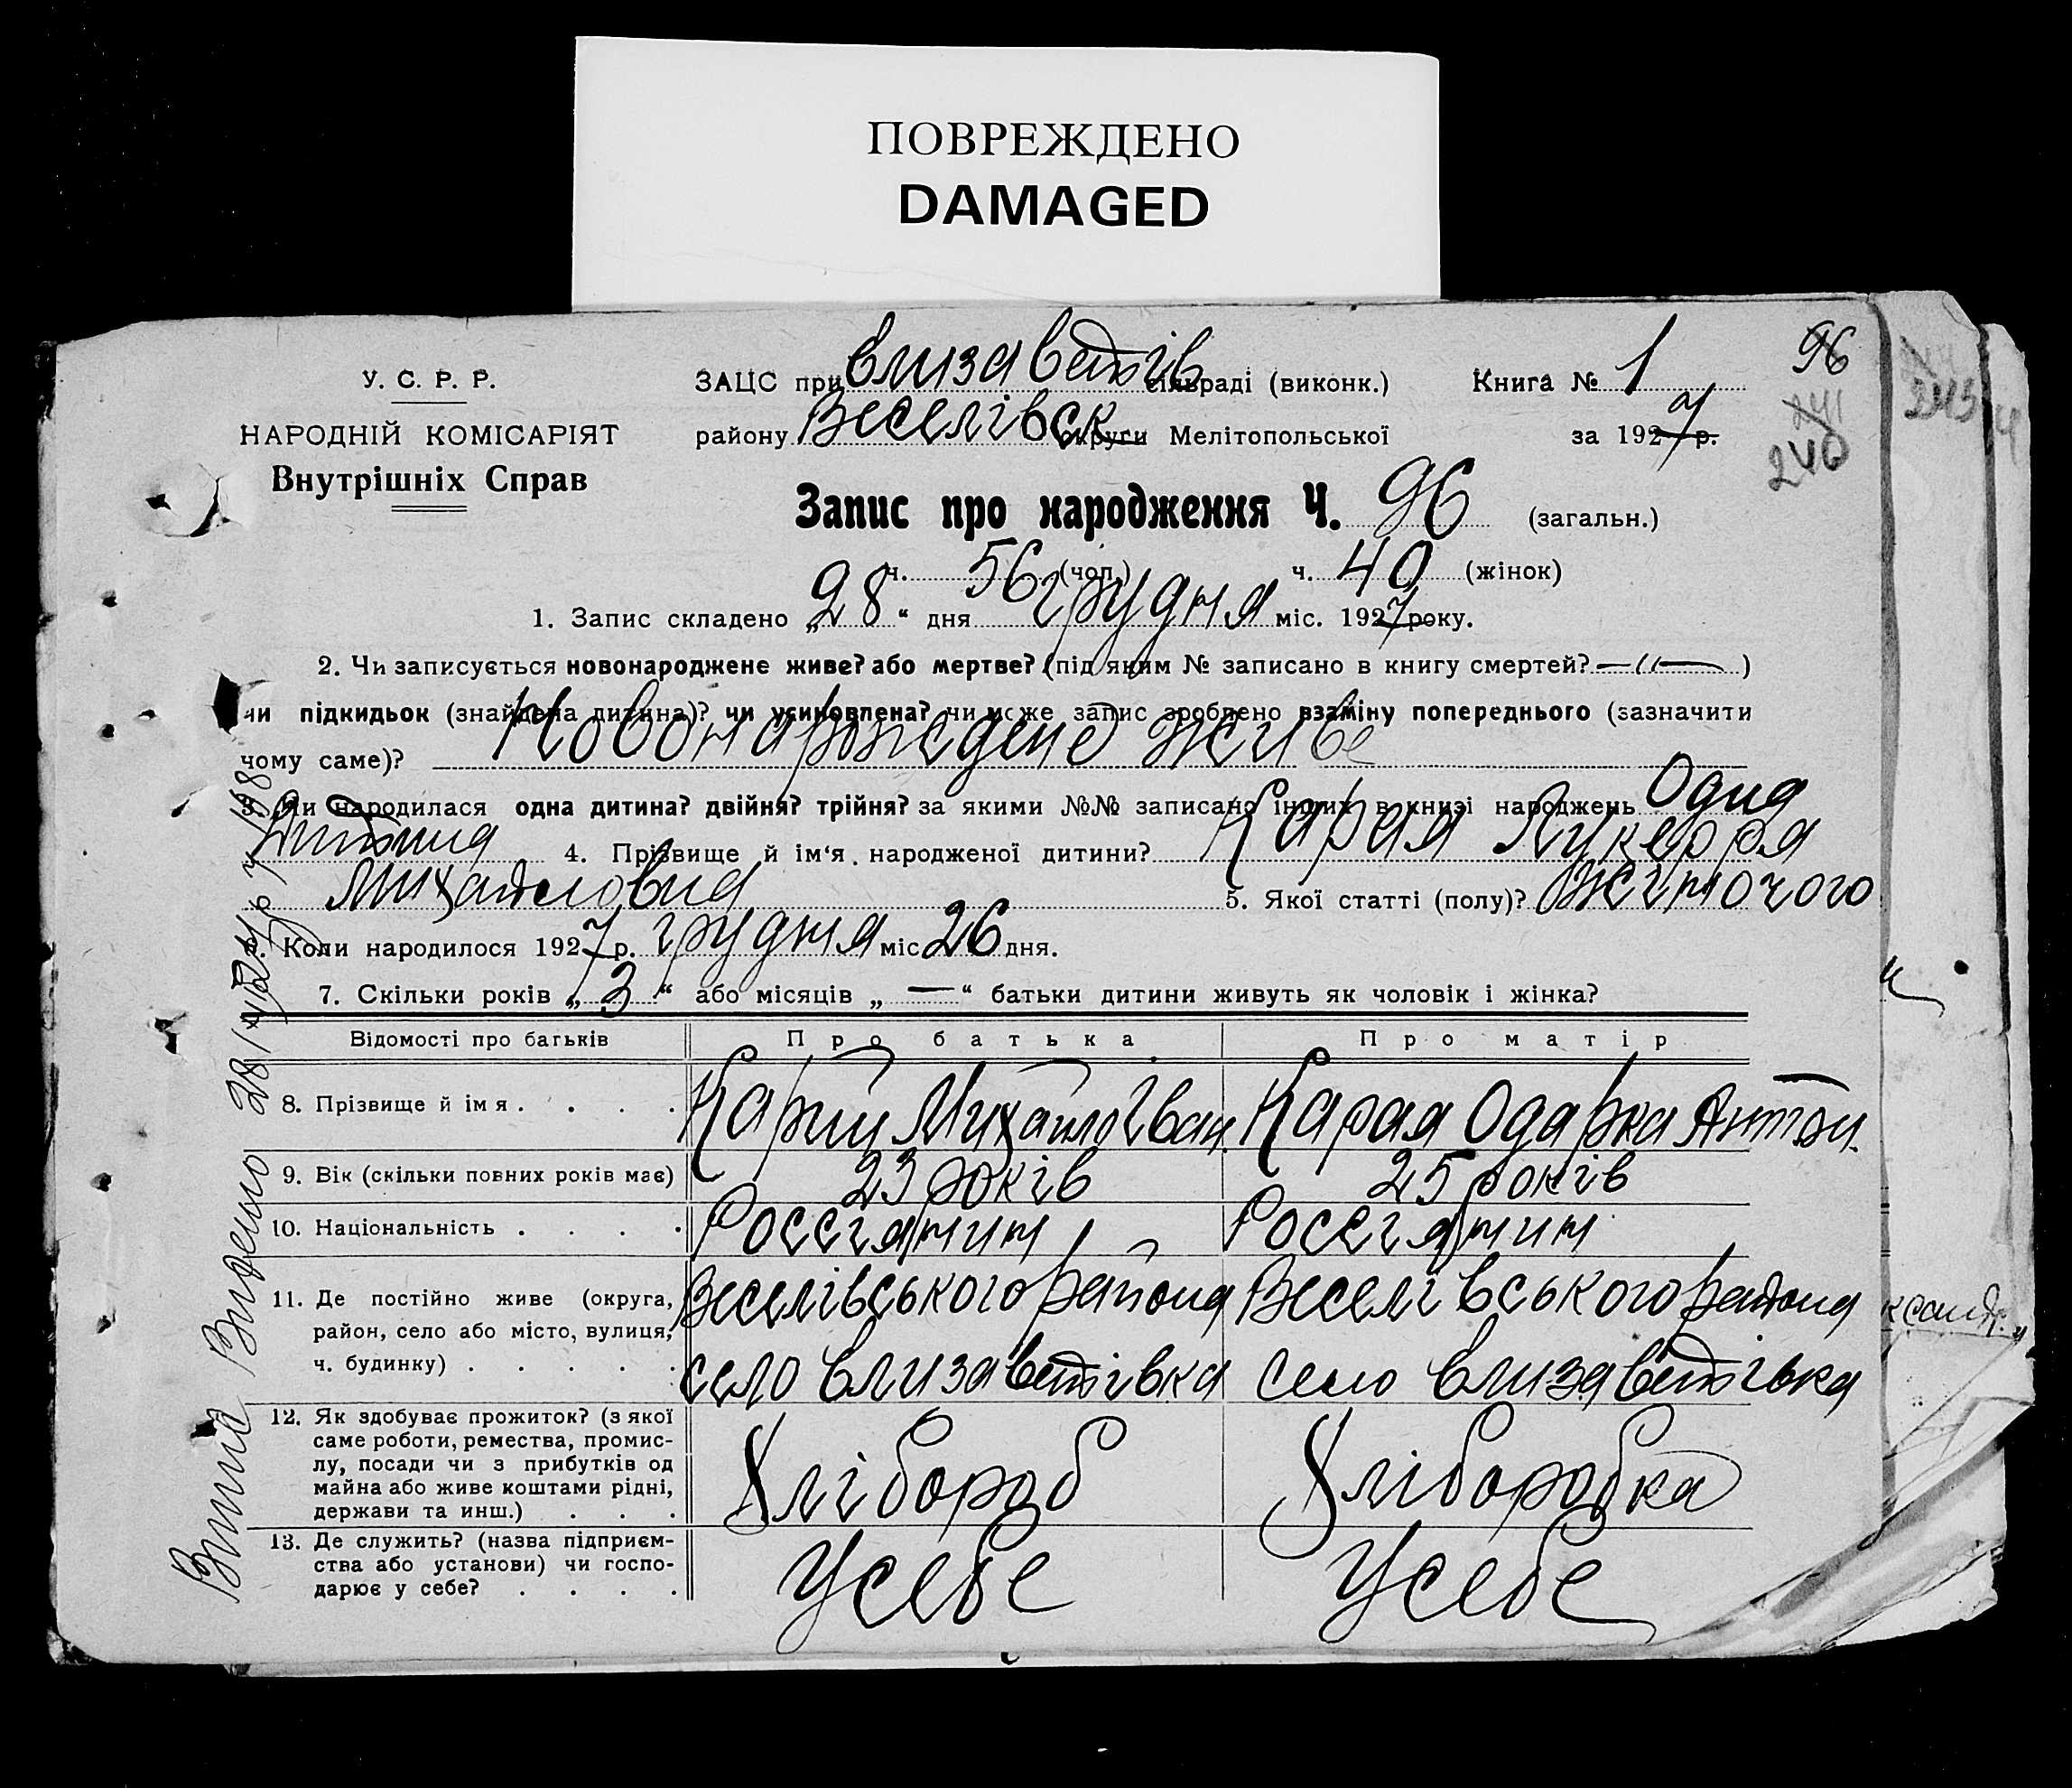 ПОВРЕЖДЕНО
DAMAGED
У. С. Р. Р.
НАРОДНІЙ КОМІСАРІЯТ
Внутрішніх Справ
ЗАЦС при Єлизаветів сільраді (виконк.) Книга № 1
району Веселівськ округи Мелітопольської за 1927 р.
96
241
240
243
Запис про народження Ч. 96 (загальн.)
ч. 56 (чол.) ч. 40 (жінок)
1. Запис складено „28“ дня грудня міс. 1927 року.
2. Чи записується новонароджене живе? або мертве? (під яким № записано в книгу смертей? —〃— )
чи підкидьок (знайдена дитина)? чи усиновлена? чи може запис зроблено взаміну попереднього (зазначити
чому саме)? Новонарождено живе
3. Чи народилася одна дитина? двійня? трійня? за якими №№ записано інших в книзі народжень Одна
дитина 4. Прізвище й ім‘я народженої дитини? Карая Лукерря
Михайловна 5. Якої статті (полу)? жіночого
6. Коли народилося 1927 р. грудня міс 26 дня.
7. Скільки років „ 3 “ або місяців „ — “ батьки дитини живуть як чоловік і жінка?
Відомості про батьків Про батька Про матір
8. Прізвище й імя . . . . Карий Михайло Іван. Карая Одарка Антон.
9. Вік (скільки повних років має) 23 років 25 років
10. Національність . . . . Россіянин Россіянин
11. Де постійно живе (округа, район, село або місто, вулиця, ч. будинку) . . . . . Веселівського района село Єлизаветівка Веселівського района село Єлизаветівка
12. Як здобуває прожиток? (з якої саме роботи, ремества, промислу, посади чи з прибутків од майна або живе коштами рідні, держави та инш.) . . . Хлібороб Хліборобка
13. Де служить? (назва підприємства або установи) чи господарює у себе? . . . . У себе У себе